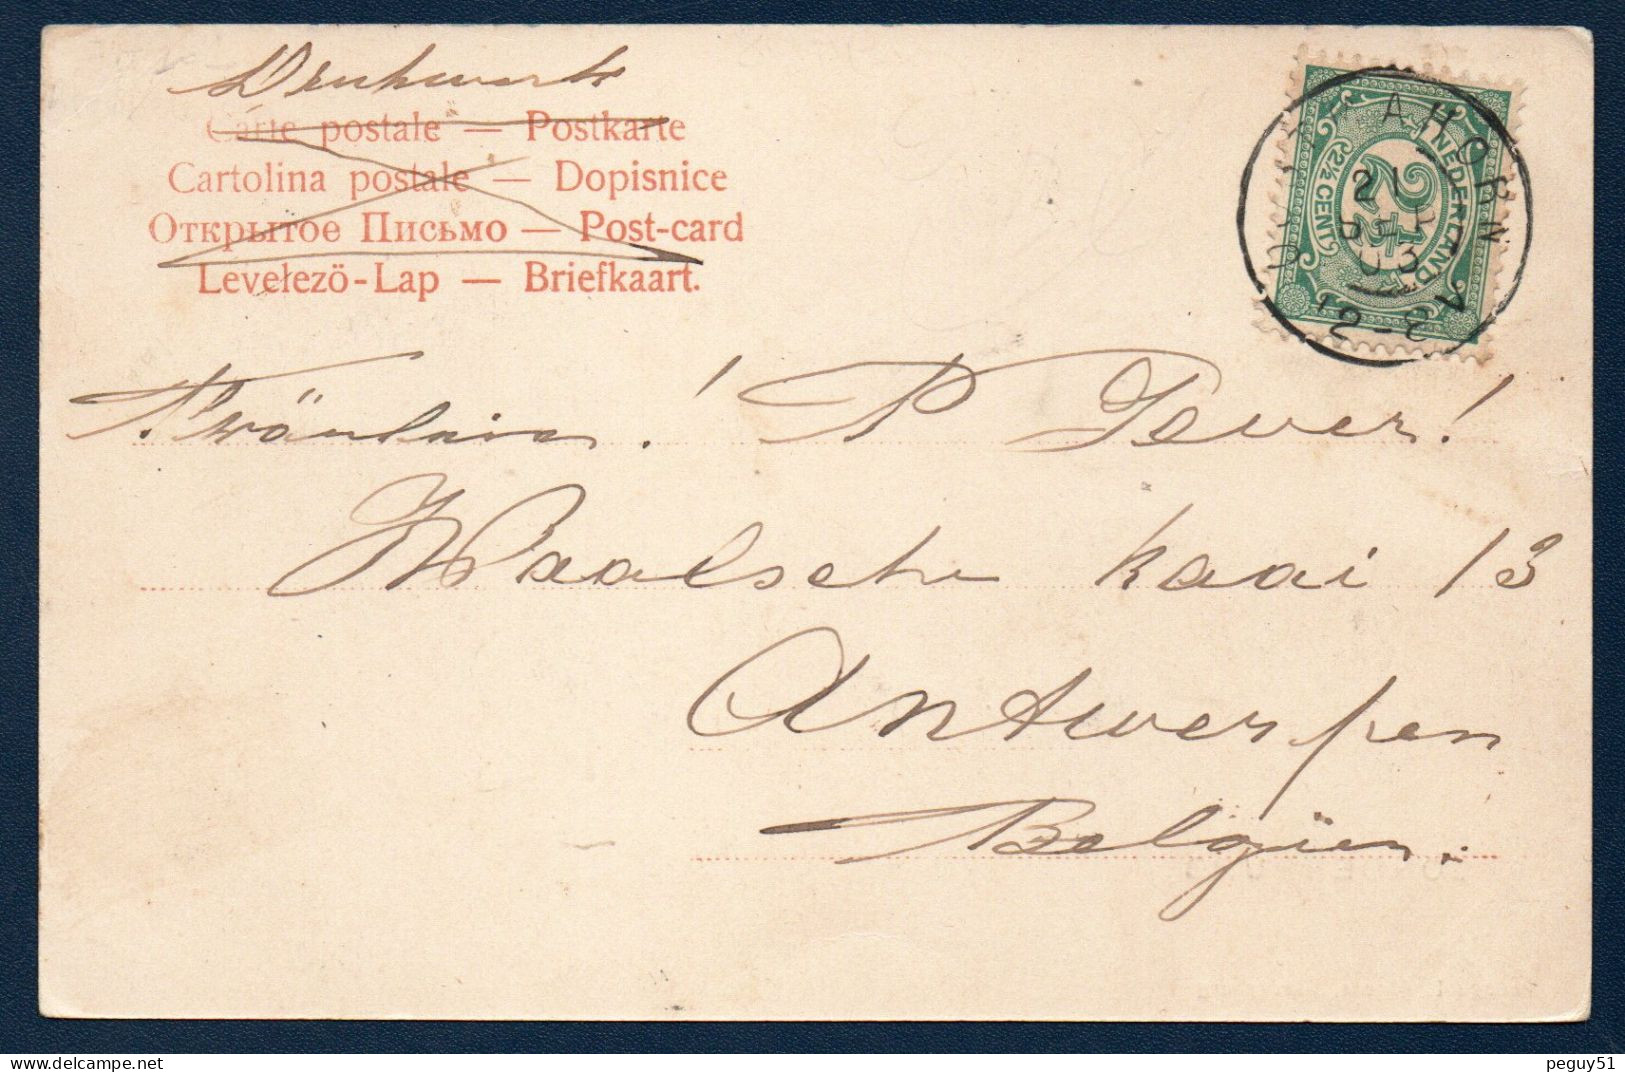 Drukwerk
Carte postale — Postkarte
Cartolina postale — Dopisnice
Открытое Письмо — Post-card
Levełezö-Lap — Briefkaart.
NEDERLAND
2½
2½ CENT
AHORN
21
03
12-
Fräulein! P Jever!
Waalsche kaai 13
Antwerpen
Belgïen.
peguy51